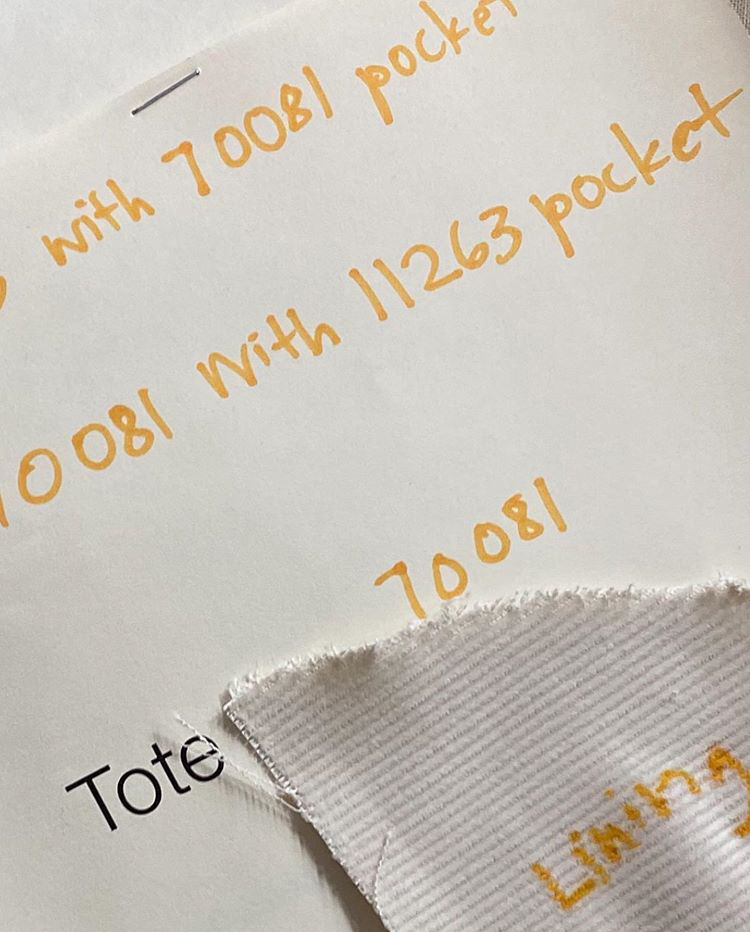 with 70081 pocket
70081 with 11263 pocket
70081
Tote
Lining